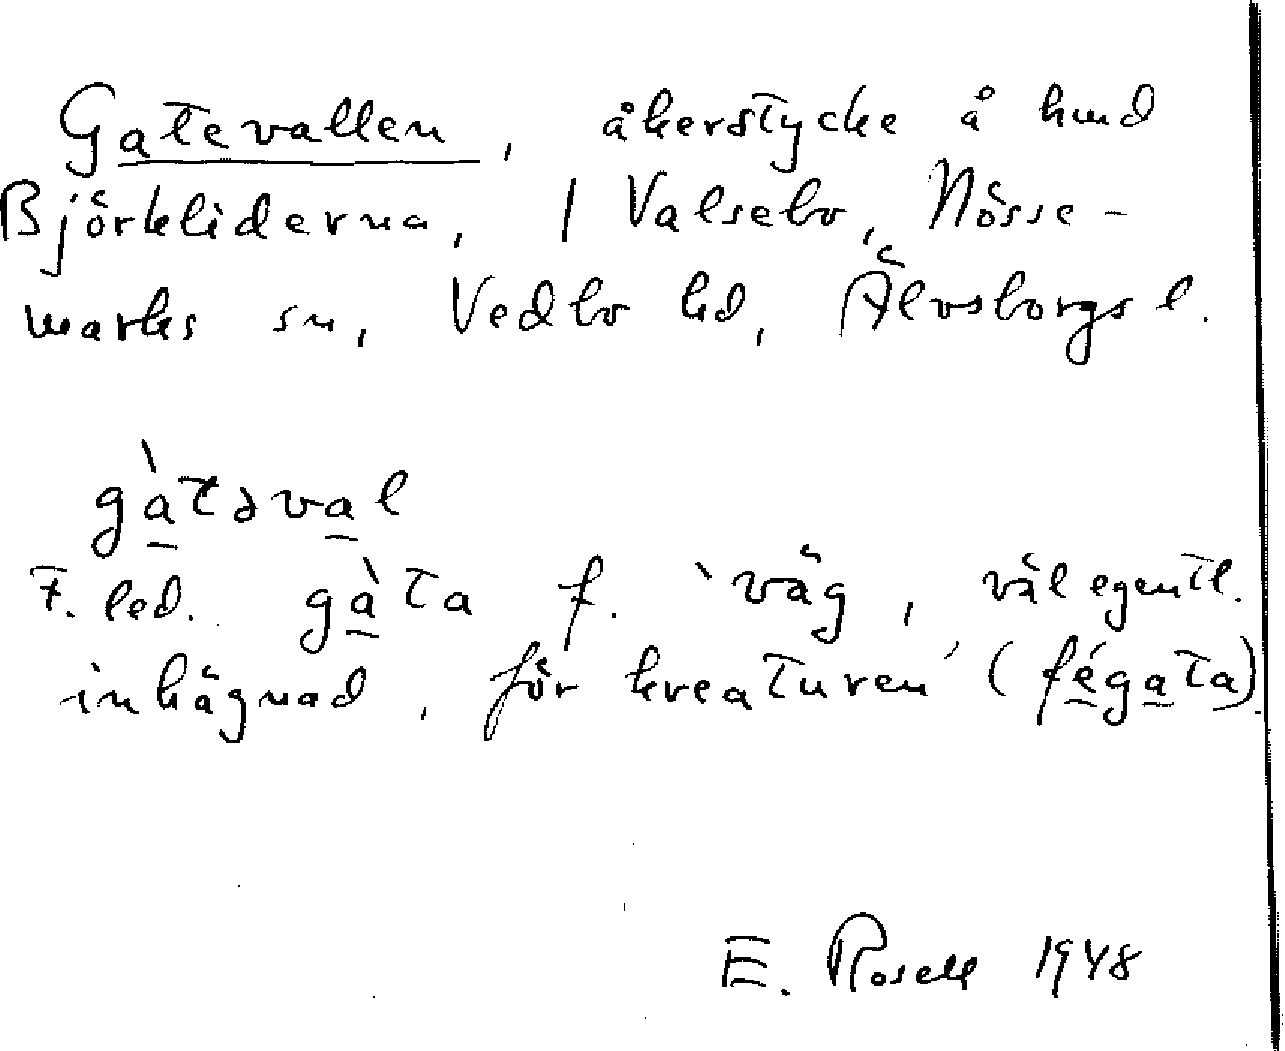 Gatevallen, åkerstycke å hmd
Björkliderna, 1 Valsebo, Nösse-
marks sn, Vedbo hd, Älvsborgs l.
gàtəval
F. led. gàta f. 'väg, väl egentl.
inhägnad, för kreaturen' (fégata).
E. Rosell 1948